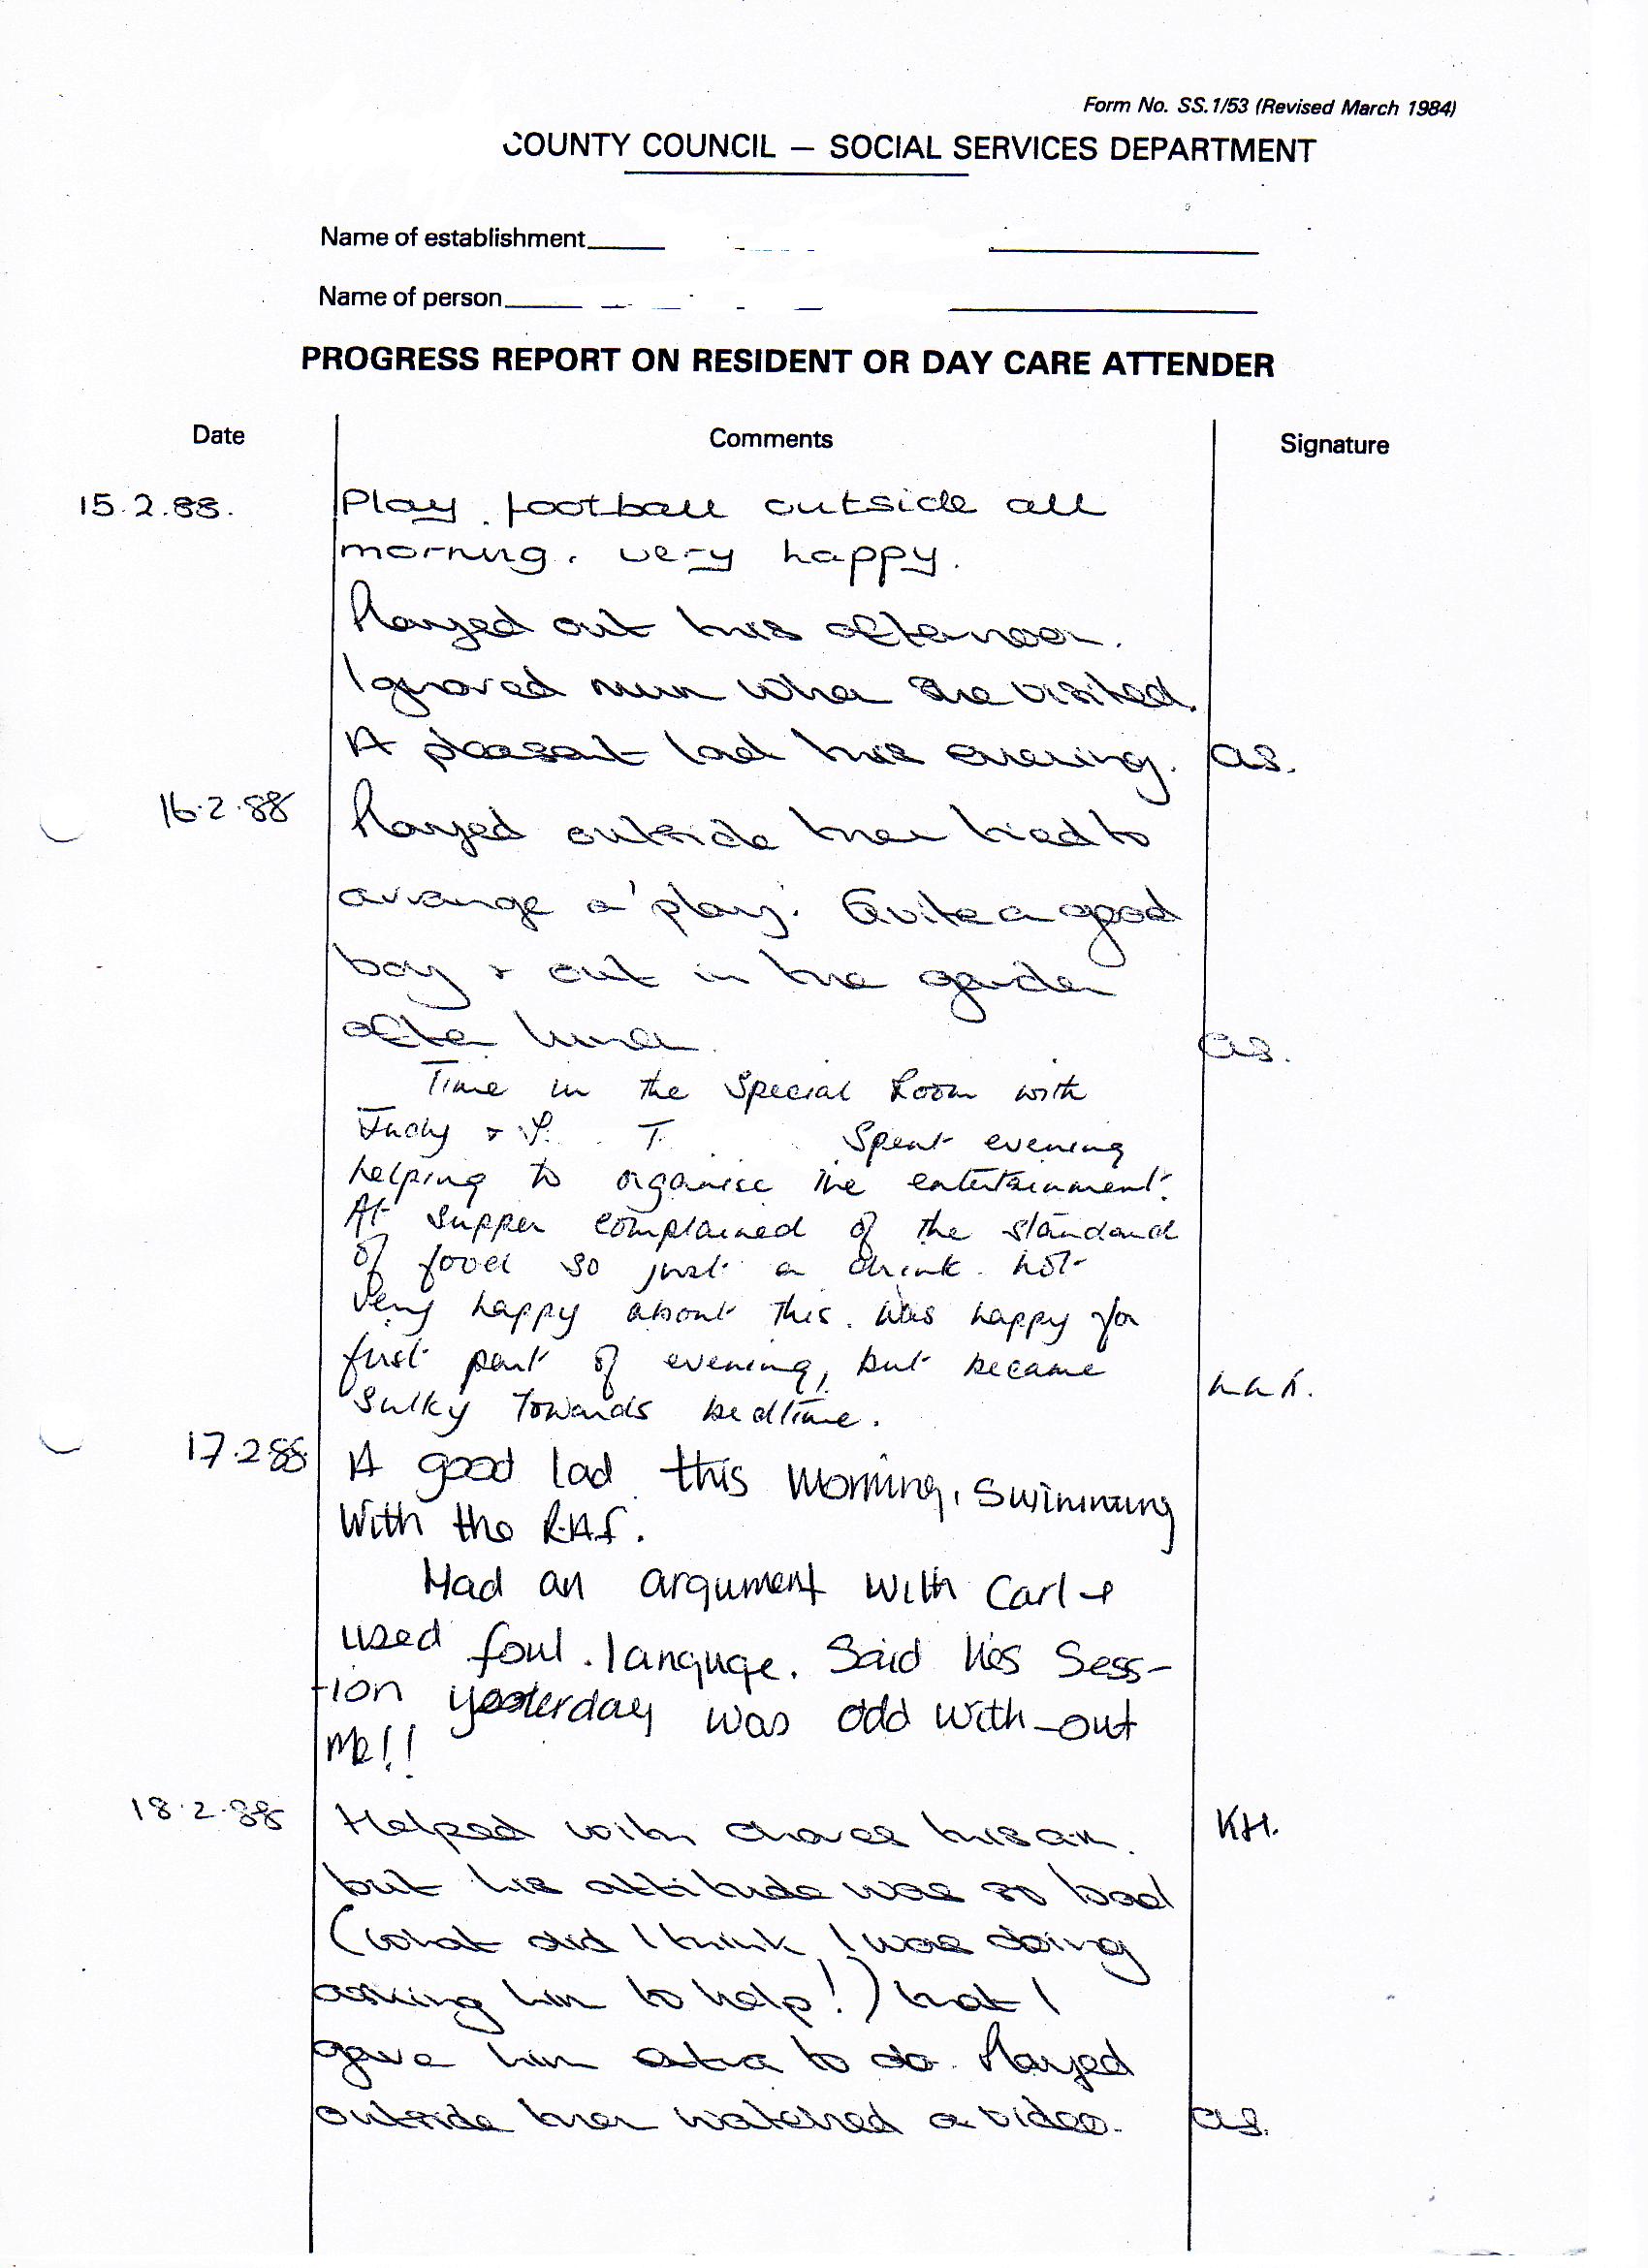 Form No. SS.1/53 (Revised March 1984)
COUNTY COUNCIL — SOCIAL SERVICES DEPARTMENT
Name of establishment
Name of person
PROGRESS REPORT ON RESIDENT OR DAY CARE ATTENDER
Date Comments Signature
15.2.88. Play football outside all
morning. very happy.
Played out this afternoon.
Ignored mum when she visited.
A pleasant lad this evening. as.
16.2.88 Played outside then tried to
arrange a 'play'. Quite a good
boy & out in the garden
after lunch. as.
Time in the Special Room with
Judy & Y. T. Spent evening
helping to organise the entertainment.
At supper complained of the standard
of food so just a drink. not
very happy about this. Was happy for
first part of evening, but became
sulky towards bedtime.
17.2.88 A good lad this morning, swimming
with the R.A.F.
Had an argument with Carl &
used foul languge. Said his Sess-
-ion yesterday was odd with-out
Me!!
18.2.88 Helped with chores this am. KH.
but his attitude was so bad
(what did I think I was doing
asking him to help!) that I
gave him extra to do. Played
outside then watched a video. as.